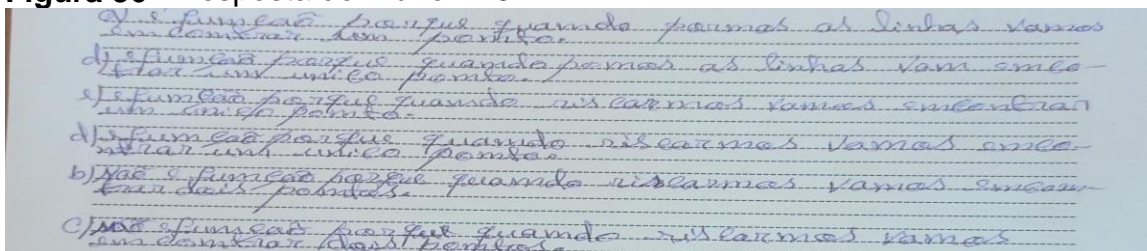 a) é função porque quando pormos as linhas vamos
encontrar um ponto.
d) é função porque quando pomos as linhas vam enco-
ntrar um unico ponto.
e) é função porque quando riscarmos vamos encontrar
um unico ponto.
d) é função porque quando riscarmos vamos enco-
ntrar um unico ponto.
b) Não é função porque quando riscarmos vamos encon-
trar dois pontos.
c) não é função porque quando riscarmos vamos
encontrar dois pontos.